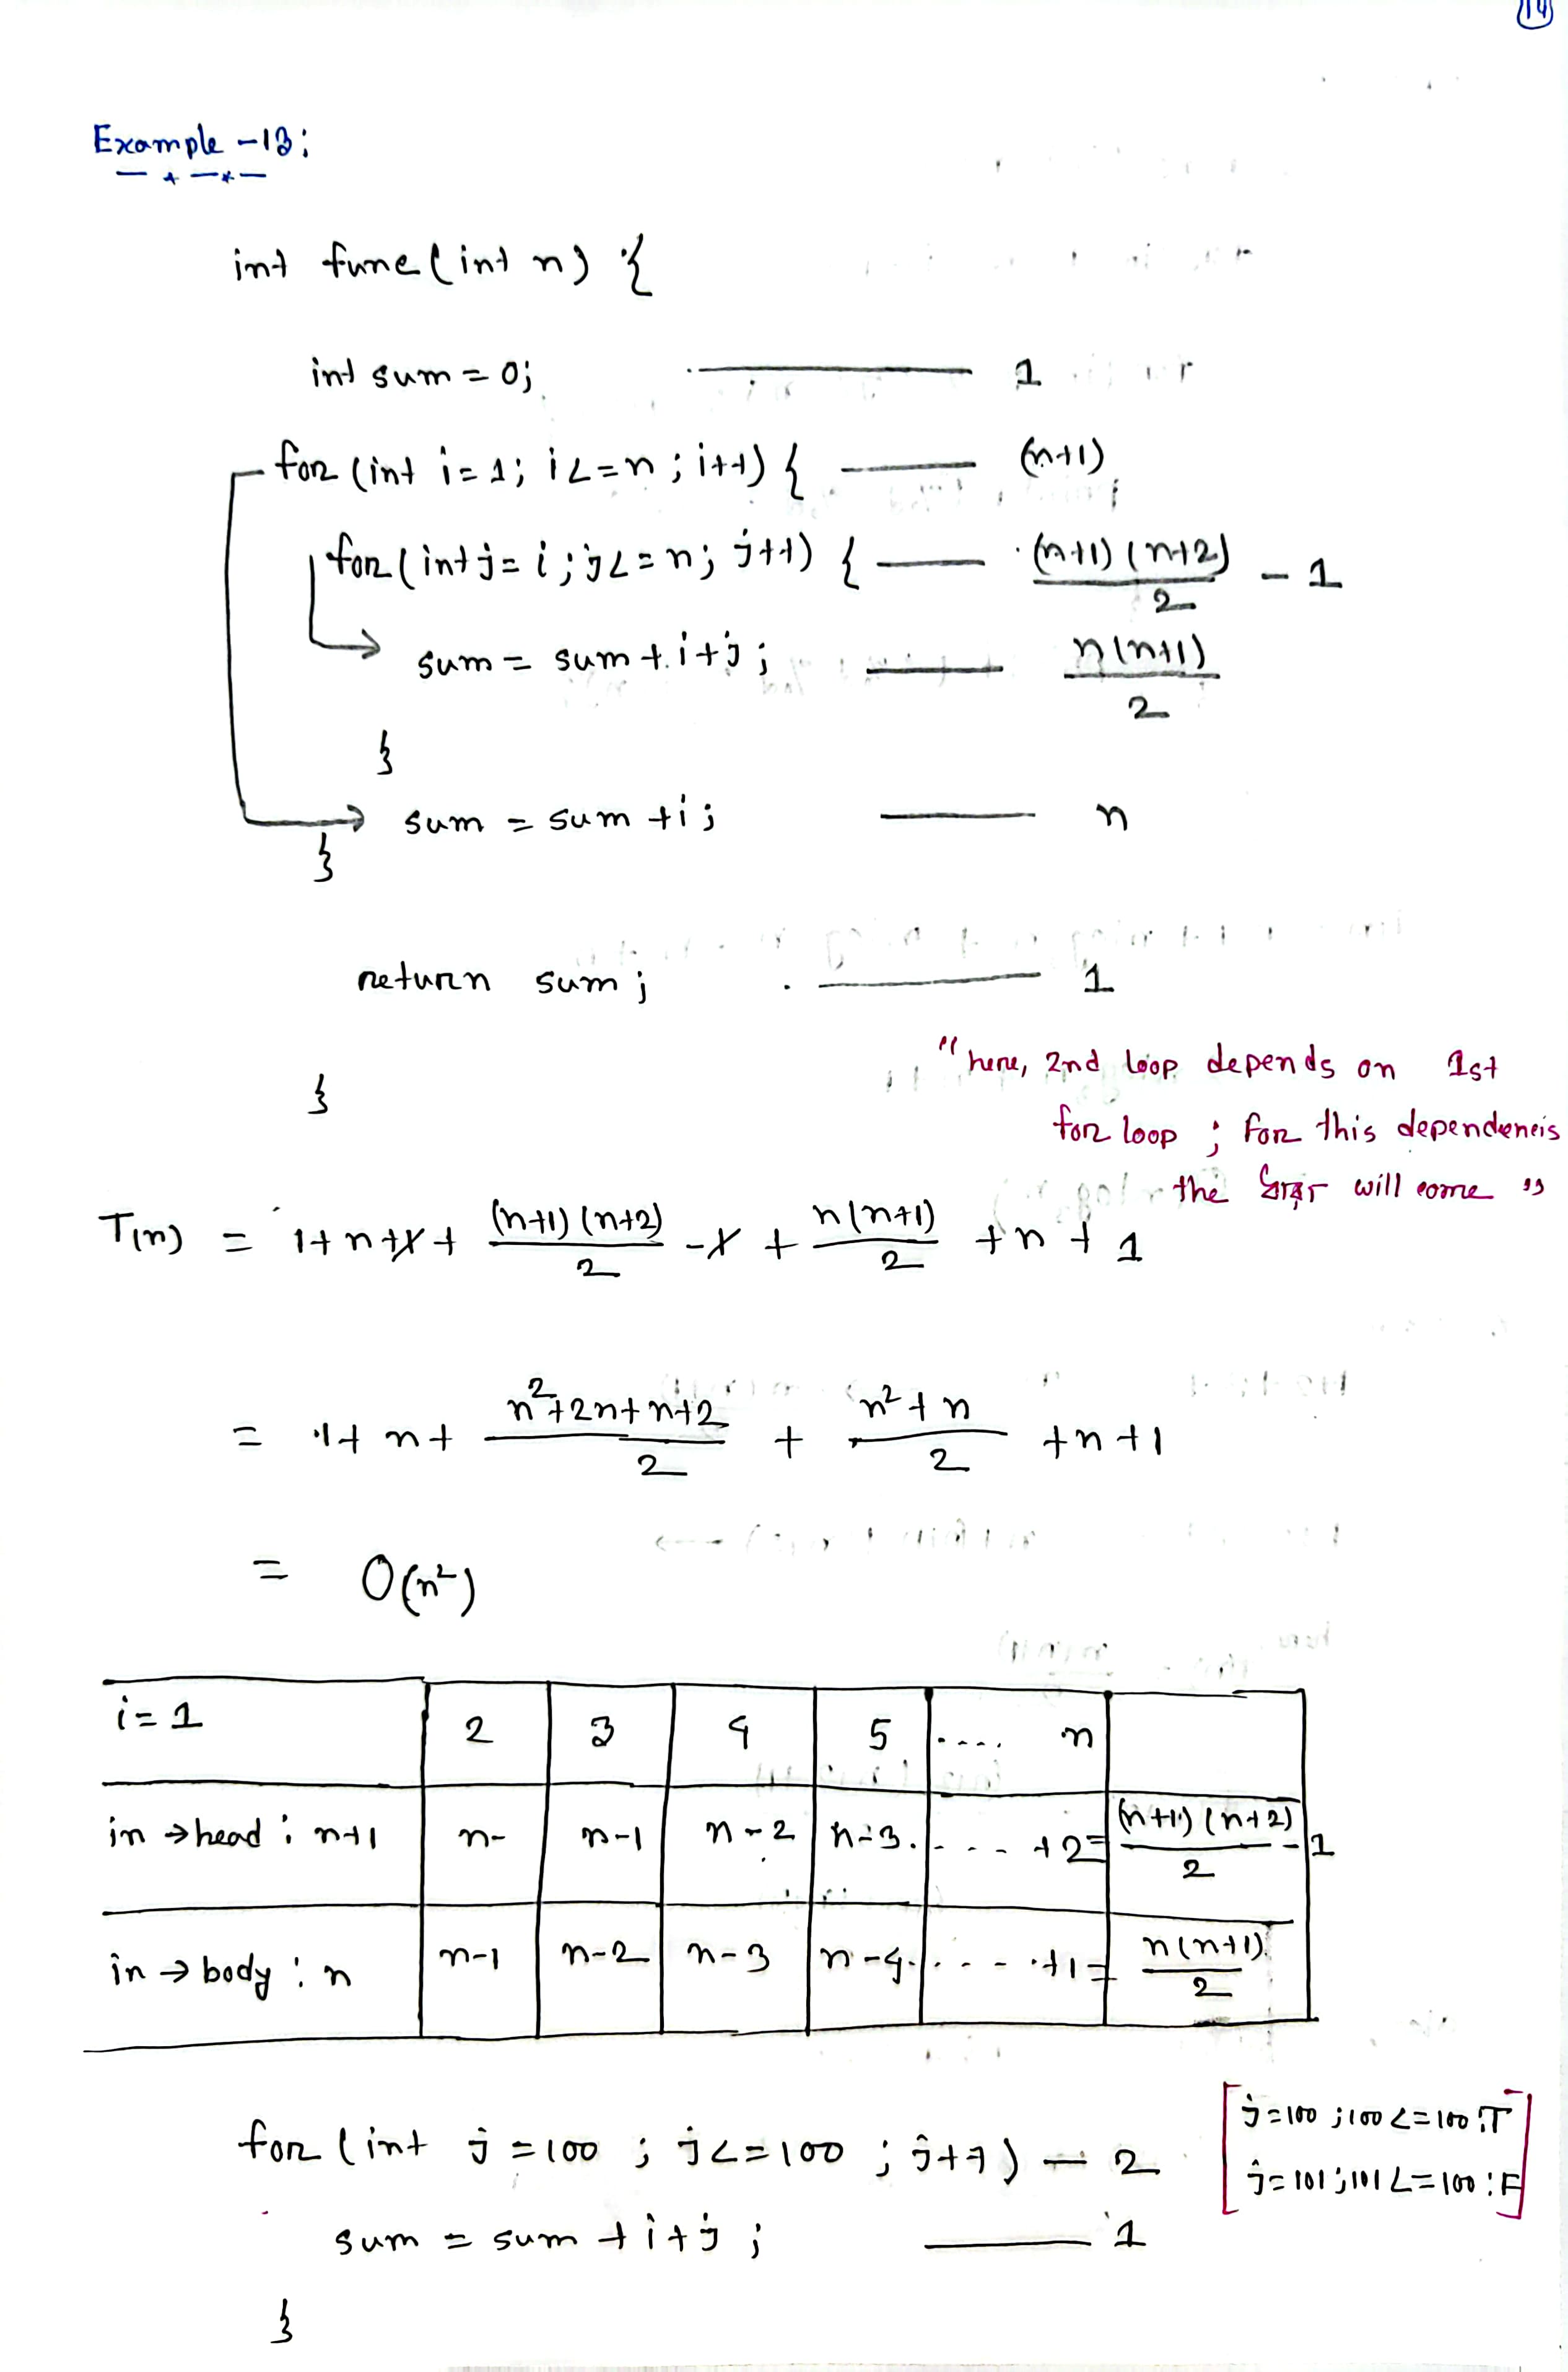 14
Example -13:
int func(int n) {
int sum = 0; 1
for (int i = 1; i <= n; i++) { (n+1)
for (int j = i; j <= n; j++) { (n+1)(n+2)/2 - 1
sum = sum + i + j; n(n+1)/2
}
sum = sum + i; n
}
return sum; 1
}
"here, 2nd loop depends on 1st
for loop; for this dependencis
the will come"
T(n) = 1 + n + 1 + (n+1)(n+2)/2 - 1 + n(n+1)/2 + n + 1
= 1 + n + n²+2n+n+2/2 + n²+n/2 + n + 1
= O(n²)
i = 1 2 3 4 5 .... n
in → head : n+1 n- n-1 n-2 n-3 . - - - +2 = (n+1)(n+2)/2 - 1
in → body : n n-1 n-2 n-3 n-4 . . - - - +1 = n(n+1)/2
for (int j = 100 ; j <= 100 ; j++) — 2 [j=100 ; 100 <= 100 : T
j = 101 ; 101 <= 100 : F]
sum = sum + i + j ; 1
}